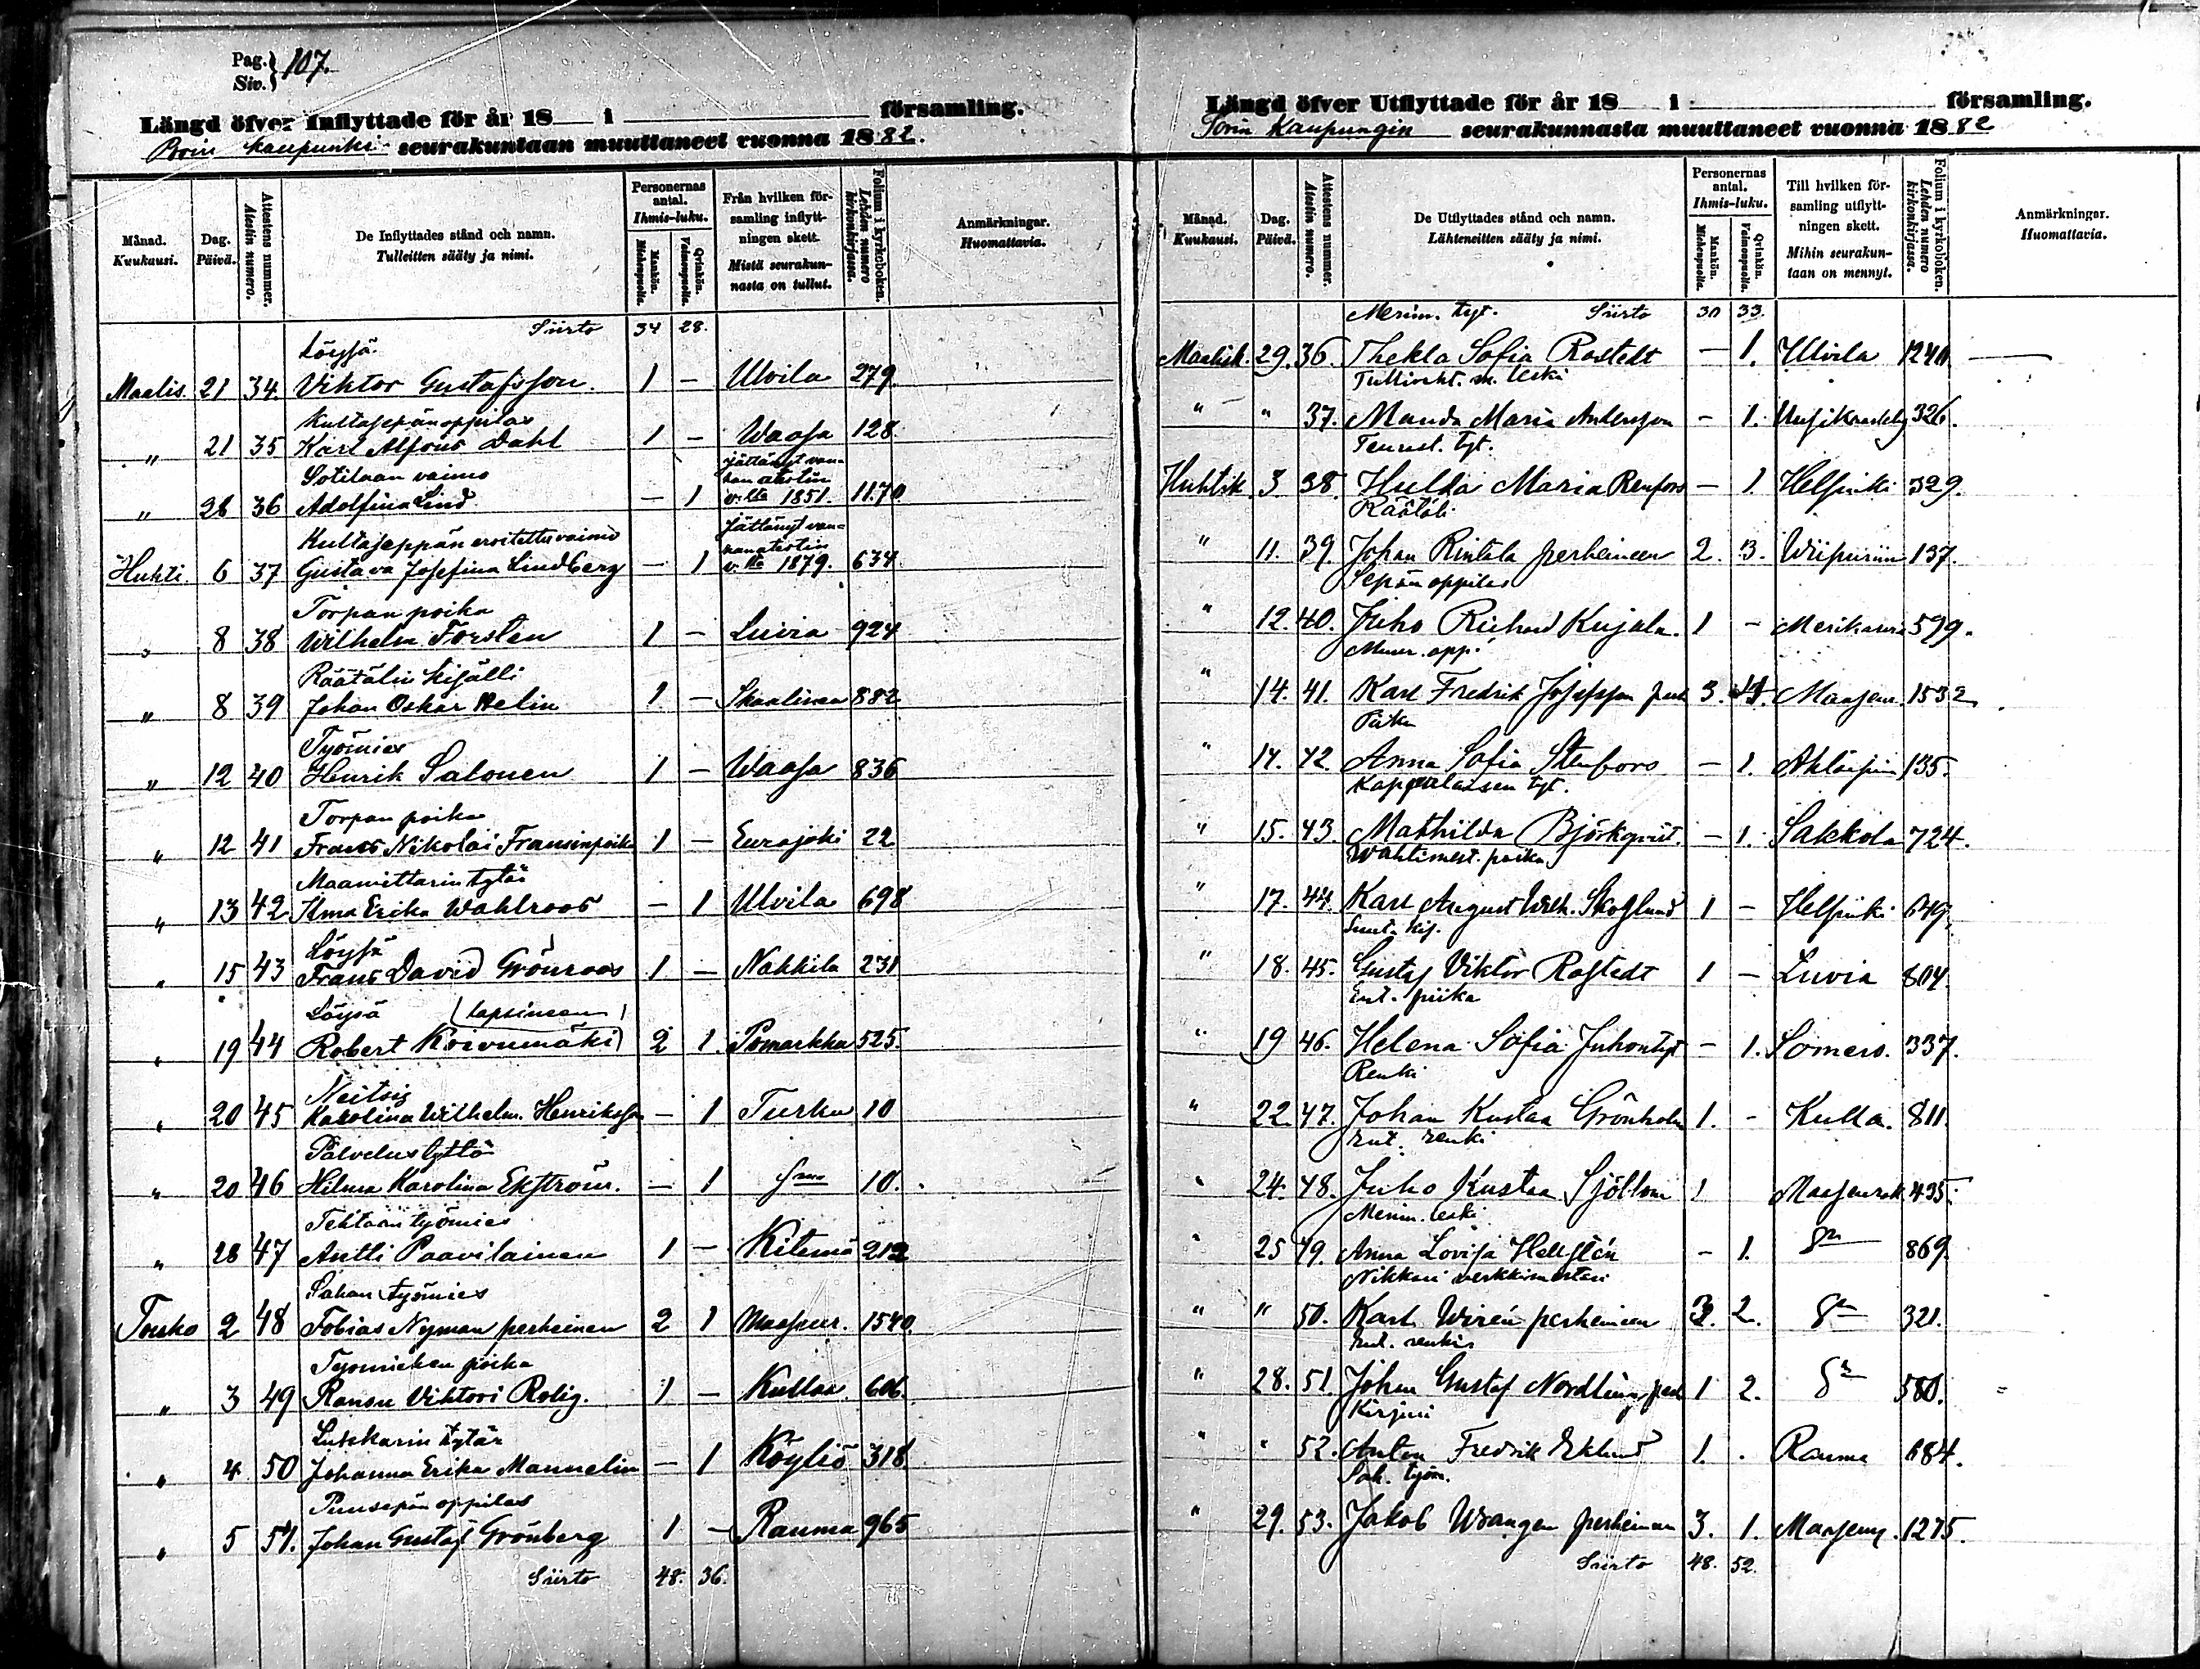 Pag. Siv. } 107.
Längd öfver Inflyttade för år 18 i församling.
Porin kaupunki seurakuntaan muuttaneet vuonna 1882.
Månad. Kuukausi.
Dag. Päivä.
Attestens nummer. Atestin numero.
De Inflyttades stånd och namn. Tulleitten sääty ja nimi.
Personernas antal. Ihmis-luku.
Mankön. Miehenpuolta.
Qvinkön. Vaimonpuolta.
Från hvilken församling inflyttningen skett. Mistä seurakunnasta on tullut.
Folium i kyrkoboken. Lehden numero kirkonkirjassa.
Anmärkningar. Huomattavia.
Siirto 34 28.
Löysä
Maalis. 21 34. Viktor Gustafsson. 1 – Ulvila 279.
Kultasepän oppilas
" 21 35 Karl Alfons Dahl 1 – Waasa 128.
Sotilaan vaimo jättänyt vanhan atestin
" 28 36 Adolfina Lind. – 1 v:lta 1851. 1170
Kultasepän eroitettu vaimo jättänyt vanhan atestin
Huhti. 6 37 Gustava Josefina Lindberg – 1 v:lta 1879. 634.
Torpan poika
" 8 38 Wilhelm Forsten 1 – Luvia 924
Räätälin kisälli
" 8 39 Johan Oskar Helin 1 – Ikaalinen 882
Työmies
" 12 40 Henrik Salonen 1 – Waasa 836
Torpan poika
" 12 41 Frans Nikolai Fransinpoika 1 – Eurajoki 22
Maamittarin tytär
" 13 42 Ilma Erika Wahlroos – 1 Ulvila 698
Löysä
" 15 43 Frans David Grönroos 1 – Nakkila 231
Löysä (lapsineen)
" 19 44 Robert Koivumäki 2 1. Pomarkku 525.
Neitsy
" 20 45 Karolina Wilhelm. Henriksson – 1 Turku 10
Palvelustyttö
" 20 46 Hilma Karolina Ekström. – 1 10.
Tehtaan työmies
" 28 47 Antti Paavilainen 1 – Kitee 212
Sahan työmies
Touko 2 48 Tobias Nyman perheinen 2 1 Maaseur. 1540.
Työmiehen poika
" 3 49 Ransu Viktori Rolig. 1 – Kullaa. 606.
Lukkarin tytär
" 4 50 Johanna Erika Mannelin – 1 Köyliö 318.
Puusepän oppilas
" 5 51. Johan Gustaf Grönberg 1 – Rauma 965
Siirto 48. 36.
Längd öfver Utflyttade för år 18 i församling.
Porin Kaupungin seurakunnasta muuttaneet vuonna 1882
Månad. Kuukausi.
Dag. Päivä.
Attestens nummer. Atestin numero.
De Utflyttades stånd och namn. Lähteneitten sääty ja nimi.
Personernas antal. Ihmis-luku.
Mankön. Miehenpuolta.
Qvinkön. Vaimonpuolta.
Till hvilken församling utflyttningen skett. Mihin seurakuntaan on mennyt.
Folium i kyrkoboken. Lehden numero kirkonkirjassa.
Anmärkningar. Huomattavia.
Merim. tyt. Siirto 30 33.
Maalisk. 29. 36. Thekla Sofia Rostedt – 1. Ulvila 1240.
Tullivaht. m. leski
" " 37. Manda Maria Andersson – 1. 326.
tyt.
Huhtik 3 38. Hulda Maria Renfors – 1. Helsinki 329.
Räätäli
" 11. 39. Johan Rintala perheineen 2. 3. Wiipuriin 137.
Sepän oppilas
" 12. 40. Juho Richard Kujala. 1 – Merikarvia 599.
Muur. opp.
" 14. 41. Karl Fredrik Josefsson perh 3. 4. Maaseur. 1532
Piika
" 14. 42. Anna Sofia Stenfors – 1. Ahlaisiin 135.
Kappalaisen tyt.
" 15. 43. Mathilda Björkqvist. – 1. Sakkola 724.
Wahtimest. poika
" 17. 44. Karl August Wilh. Skoglund 1 – Helsinki 649.
Suut. kis.
" 18. 45. Gustaf Viktor Rostedt 1 – Luvia 804.
Ent. piika
" 19 46. Helena Sofia Juhontyt – 1. Somero. 337.
Renki
" 22. 47. Johan Kustaa Grönholm 1. – Kullaa. 811.
Ent. renki
" 24. 48. Juho Kustaa Sjöblom 1 Maaseurak 435.
Merim. leski
" 25 49. Anna Lovisa Hellstén – 1. 869.
Nikkari verkkimestari
" " 50. Karl Wirén perheineen 3. 2. 321.
Ent. renki
" 28. 51. Johan Gustaf Nordling perh 1 2. 580.
Kirjuri
" " 52. Anton Fredrik Eklund 1. . Rauma 684.
Sah. työm.
" 29. 53. Jakob Wrangen perheinen 3. 1. Maaseur. 1275.
Siirto 48. 52.